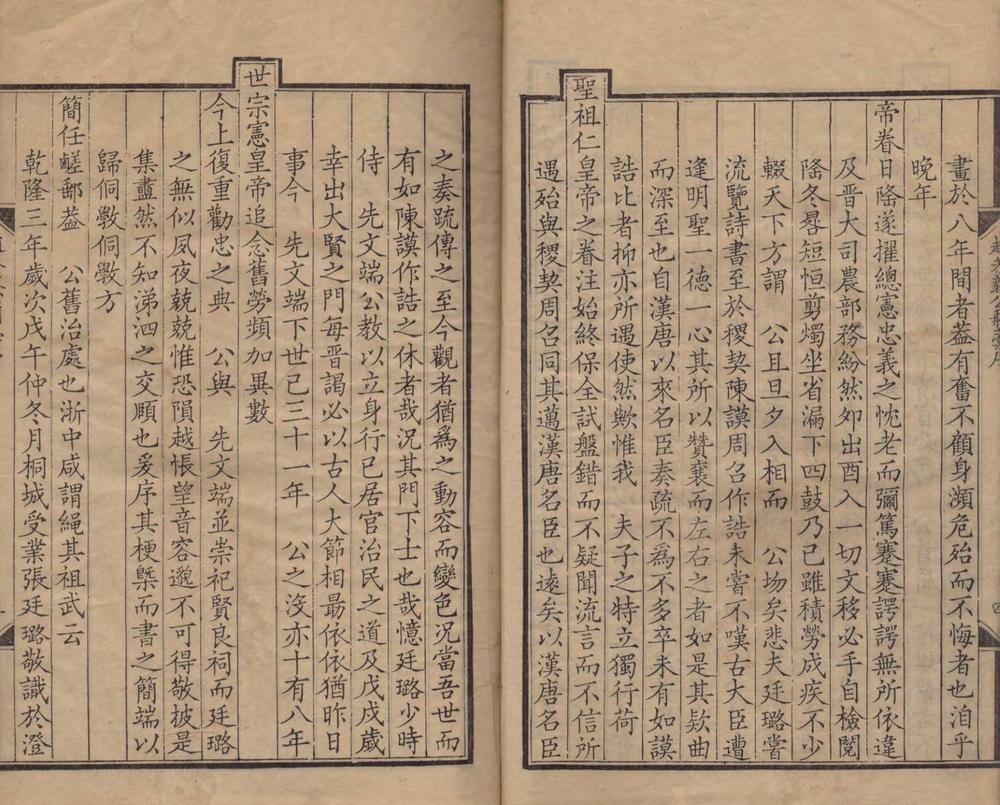 畫於八年間者葢有奮不顧身瀕危殆而不悔者也洎乎
晚年
帝眷日隆遂擢總憲忠義之忱老而彌篤蹇蹇諤諤無所依違
及晉大司農部務紛然夘出酉入一切文移必手自檢閱
隆冬晷短恒剪燭坐省漏下四鼓乃已雖積勞成疾不少
輟天下方謂　公且旦夕入相而　公塲矣悲夫廷璐嘗
流覽詩書至於稷契陳謨周召作誥未嘗不嘆古大臣遭
逢明聖一德一心其所以贊襄而左右之者如是其欵曲
而深至也自漢唐以來名臣奏疏不為不多卒未有如謨
誥比者抑亦所遇使然歟惟我　夫子之特立獨行荷
聖祖仁皇帝之眷注始終保全試盤錯而不疑聞流言而不信所
遇殆與稷契周召同其邁漢唐名臣也遠矣以漢唐名臣
之奏疏傳之至今觀者猶爲之動容而變色况當吾世而
有如陳謨作誥之休者哉况其門下士也哉憶廷璐少時
侍　先文端公教以立身行已居官治民之道及戊戌歲
幸出大賢之門每晋謁必以古人大節相最依依猶昨日
事今　先文端下世已三十一年　公之沒亦十有八年
世宗憲皇帝追念舊勞頻加異數
今上復重勸忠之典　公與　先文端並崇祀賢良祠而廷璐
之無似夙夜兢兢惟恐隕越悵望音容邈不可得敬披是
集盡然不知涕泗之交頤也爰序其梗槩而書之簡端以
歸侗斆侗斆方
簡任嵯鄱葢　公舊治處也浙中咸謂繩其祖武云
乾隆三年歲次戊午仲冬月桐城受業張廷璐敬識於澄